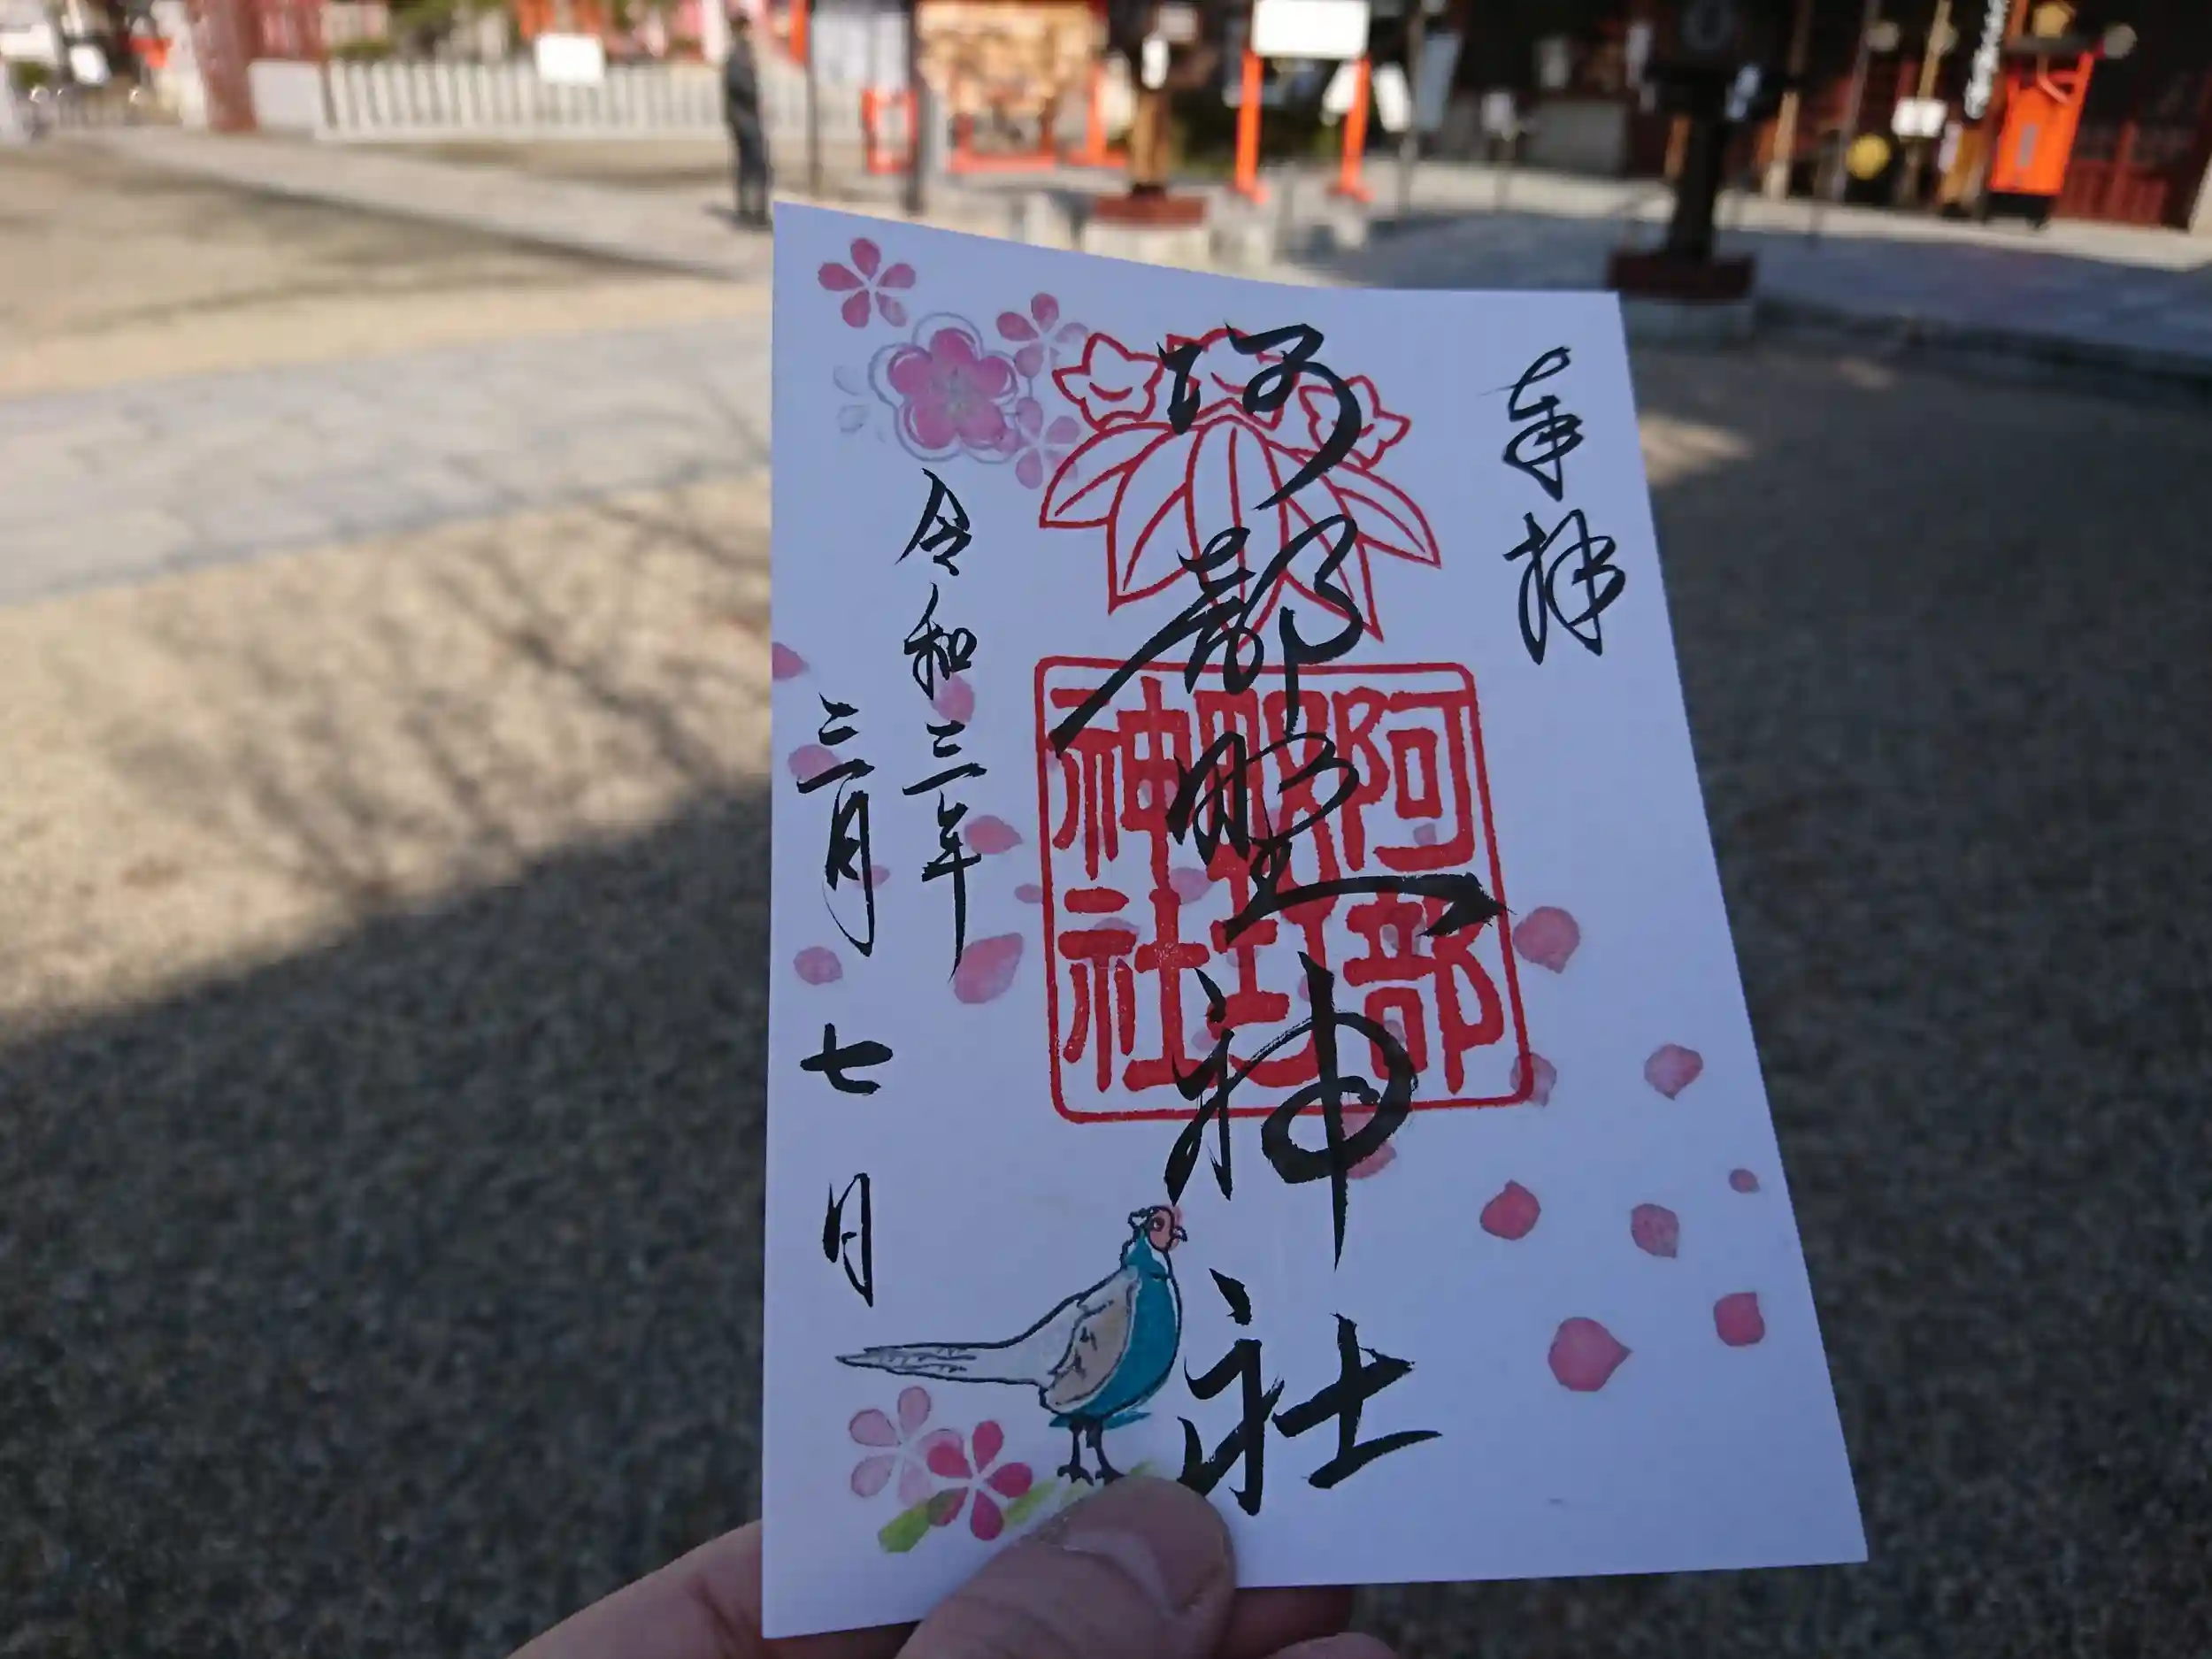 奉拝
阿部野神社
阿部野神社
令和三年
三月七日